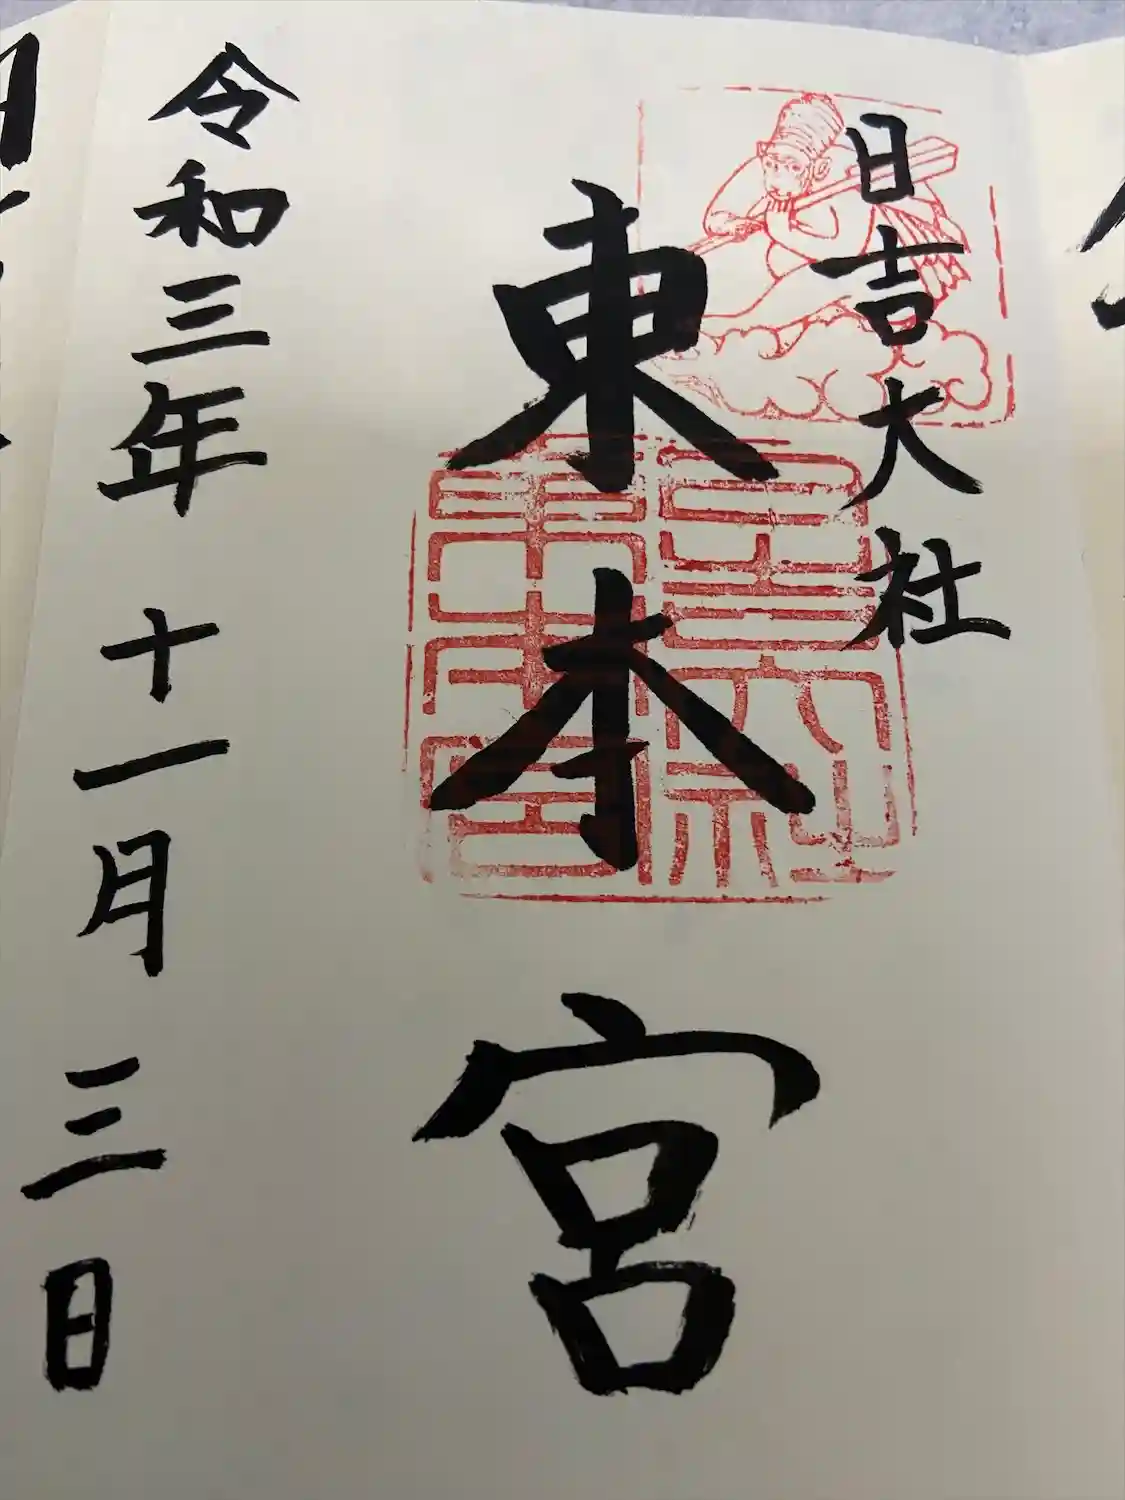 日吉大社
東本宮
令和三年 十一月 三日